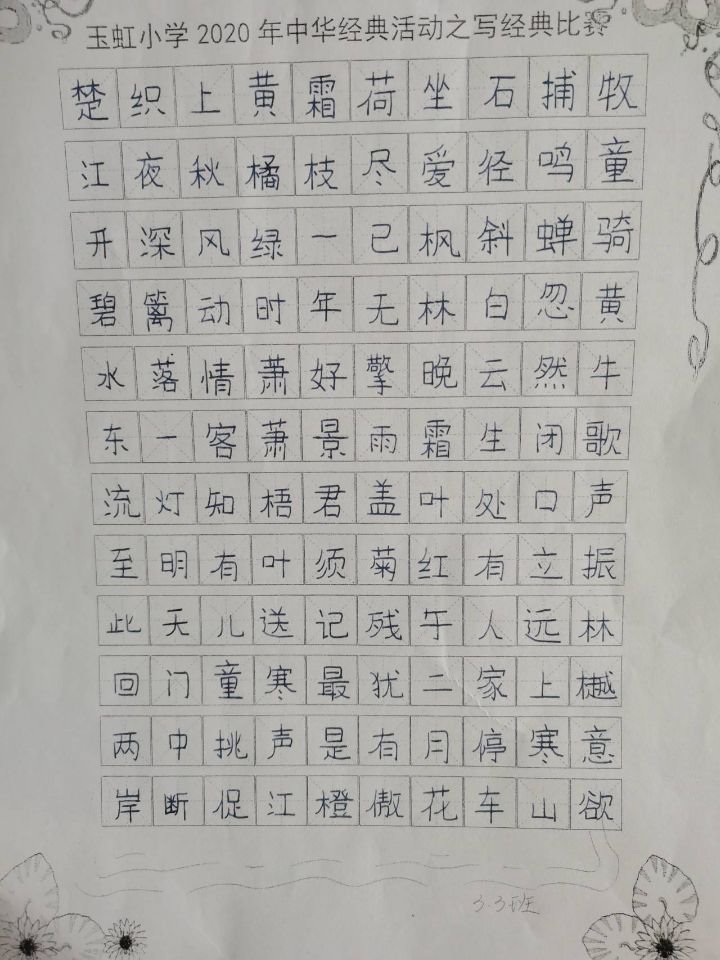 玉虹小学2020年中华经典活动之写经典比赛
楚织上黄霜荷坐石捕牧
江夜秋橘枝尽爱径鸣童
开深风绿一已枫斜蝉骑
碧篱动时年无林白忽黄
水落情萧好擎晚云然牛
东一客萧景雨霜生闭歌
流灯知梧君盖叶处口声
至明有叶须菊红有立振
此天儿送记残午人远林
回门童寒最犹二家上樾
两中挑声是有月停寒意
岸断促江橙傲花车山欲
3.3班